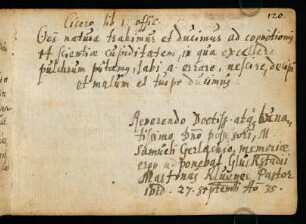 120.
Cicero lib 1. offic.
Oes natura trahimur et ducimur ad cognitionis
et scientiæ cupiditatem, in qua excellere
pulchrum putamus, labi a. errare, nescire, decipi
et malum et turpe ducimus
Reverendo Doctiss. atq huma-
tissimo dno possessori, M.
Samueli Gerlachio, memoriæ
ergo apponebat Gluckstadij
Martinus Pastor
ibid. 27. septemb Ao 35.